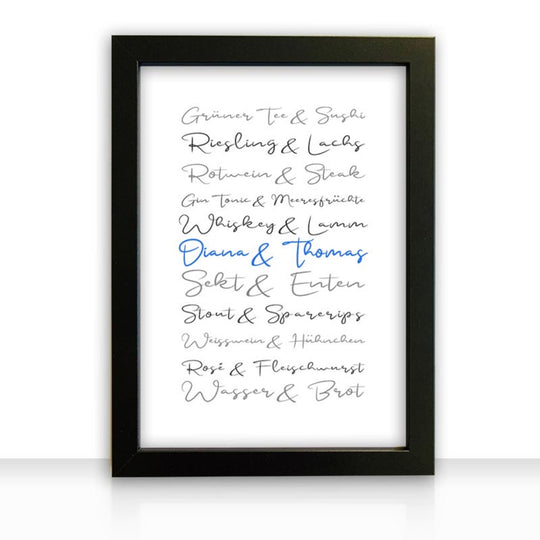 Grüner Tee & Sushi
Riesling & Lachs
Rotwein & Steak
Gin Tonic & Meeresfrüchte
Whiskey & Lamm
Diana & Thomas
Sekt & Enten
Stout & Sparerips
Weisswein & Hühnchen
Rosé & Fleischwurst
Wasser & Brot